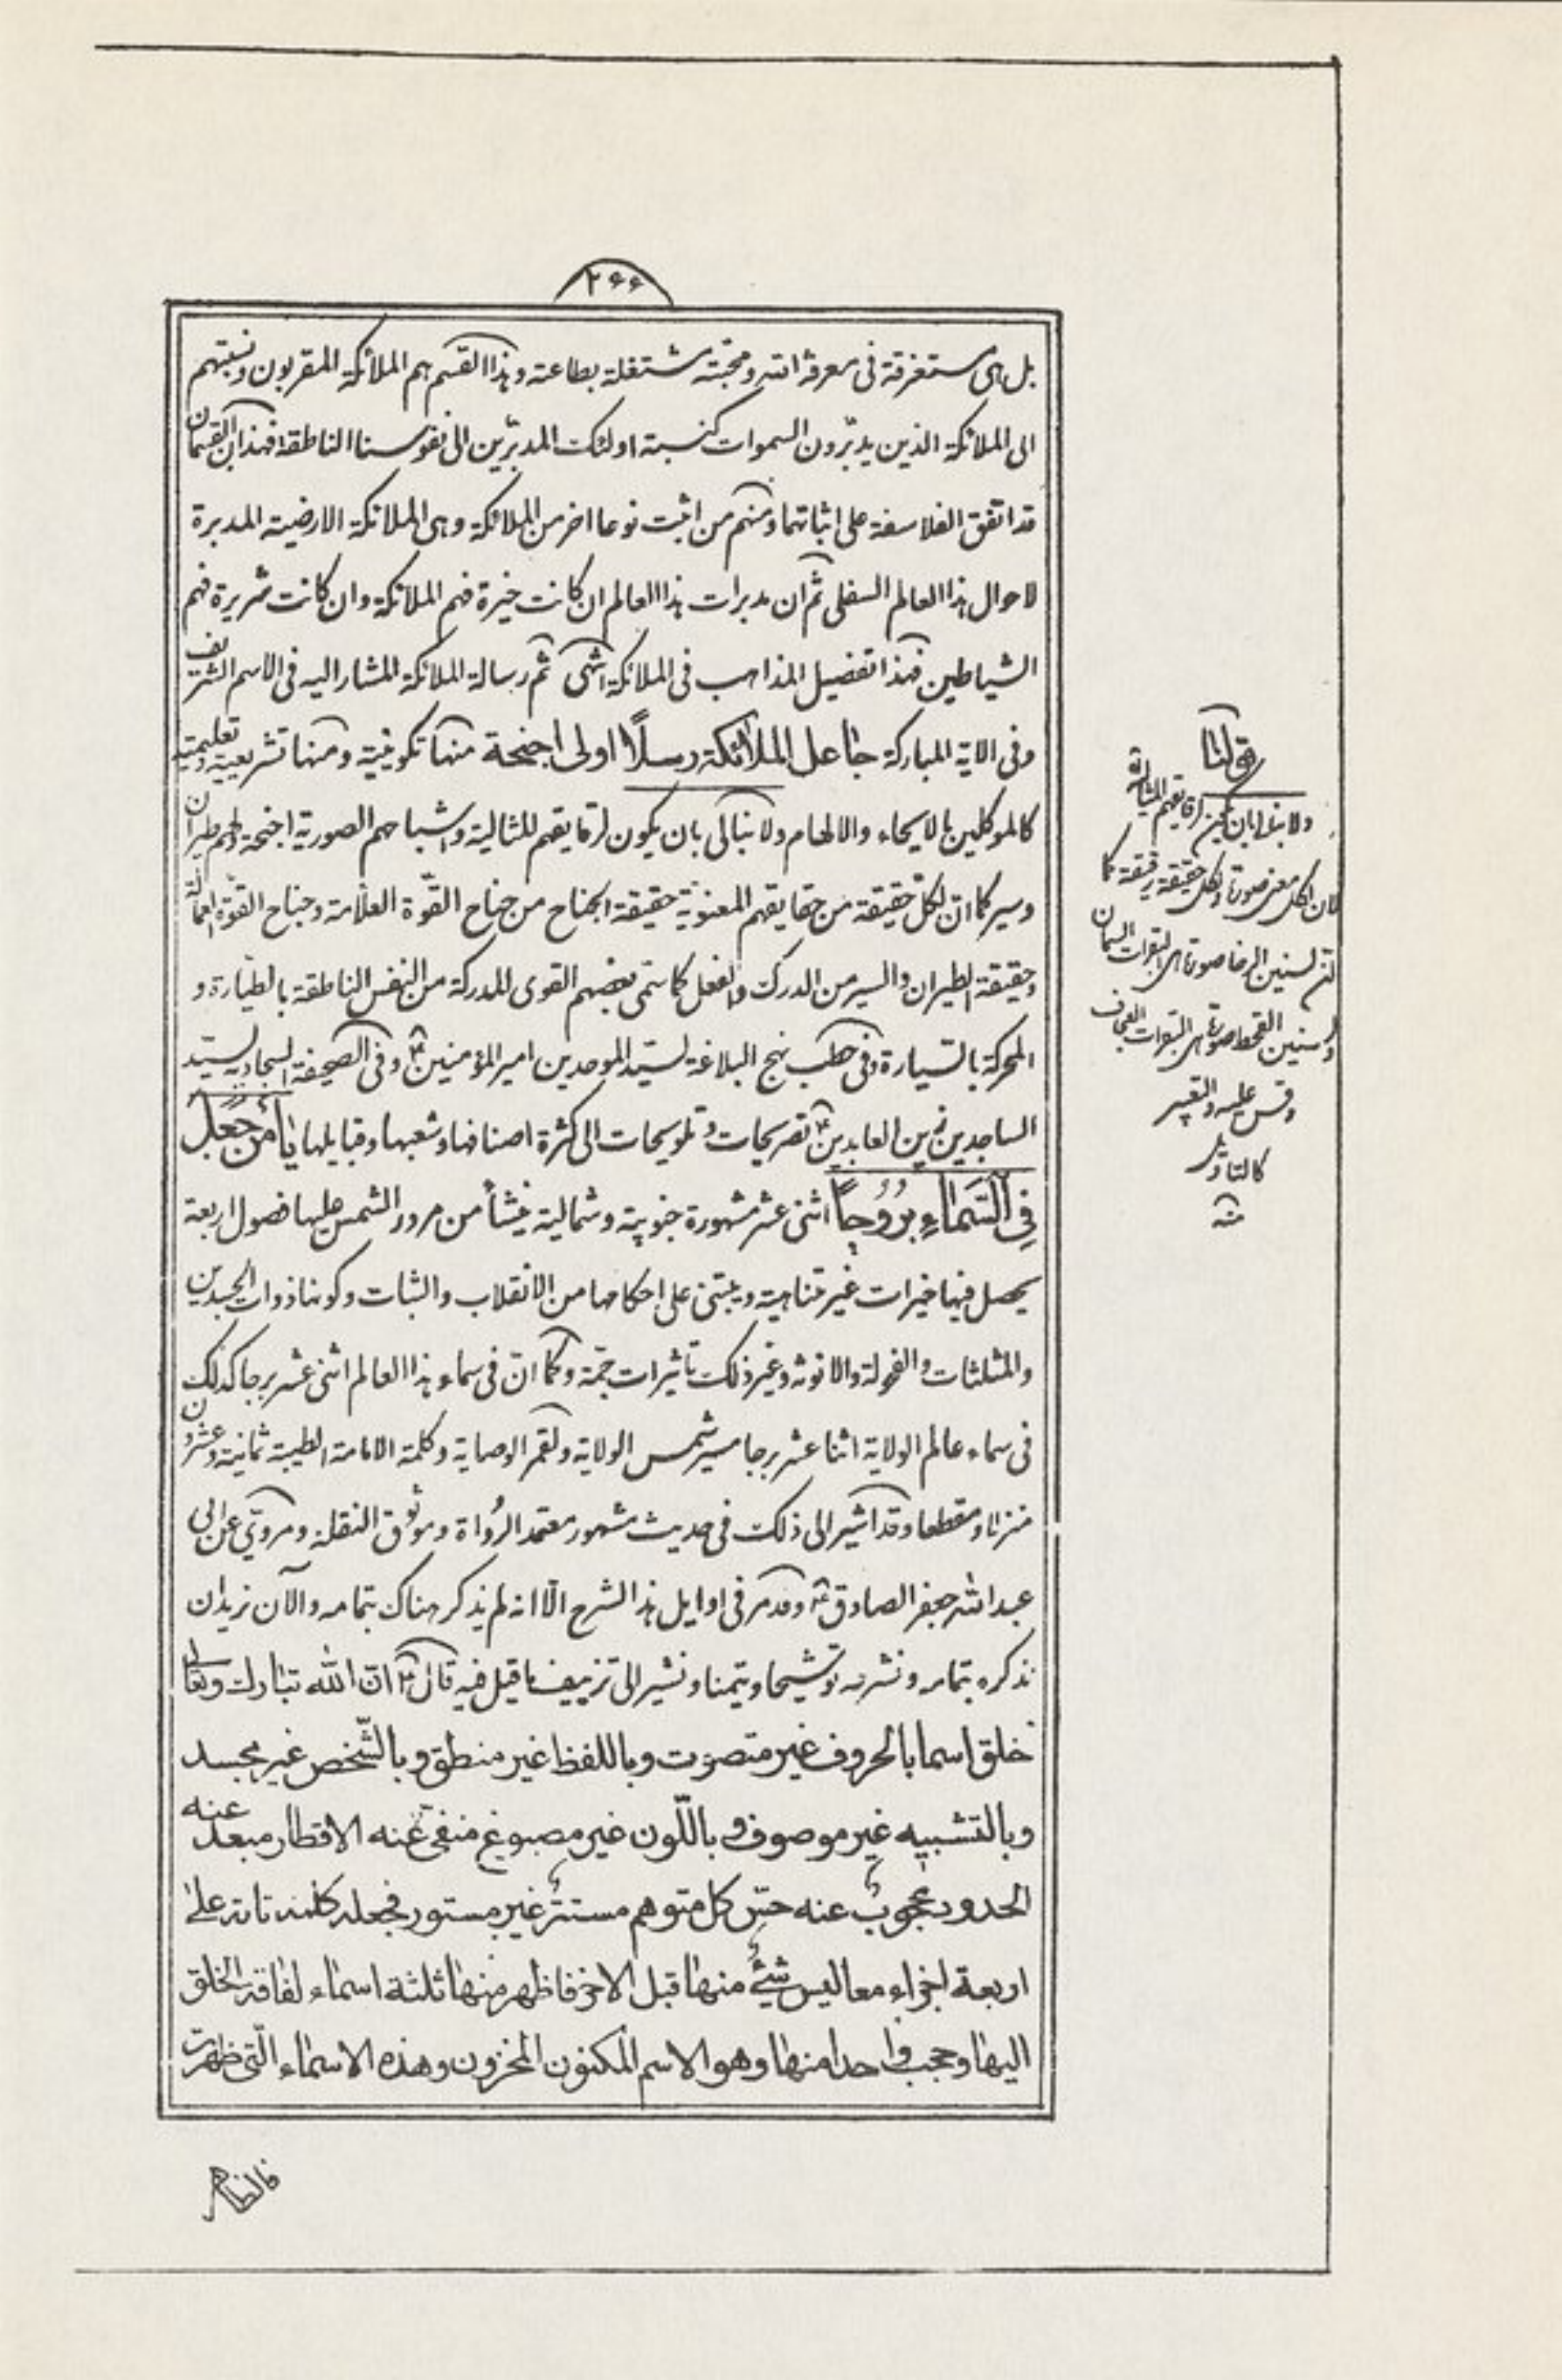 ۲۶۶
بل هى مستغرقة فى معرفة الله ومحبته مشتغلة بطاعته وهذا القسم هم الملائكة المقربون ونسبتهم
الى الملائكة الذين يدبّرون السموات كنسبة اولئك المدبّرين الى نفوسنا الناطقة فهذان القسمان
قد اتفق الفلاسفة على اثباتهما ومنهم من اثبت نوعا اخر من الملائكة وهى الملائكة الارضية المدبرة
لاحوال هذا العالم السفلى ثم ان مدبرات هذا العالم ان كانت خيرة فهم الملائكة وان كانت شريرة فهم
الشياطين فهذا تفضيل المذاهب فى الملائكة انتهى ثم رسالة الملائكة المشار اليه فى الاسم الشريف
وفى الاية المباركة جاعل الملائكة رسلًا اولى اجنحة منها تكوينية ومنها تشريعية وتعليمية
كالموكلين بالايحاء والالهام ولا نبالى بان يكون لرقايقهم المثالية واشباحهم الصورية اجنحة ولهم طيران
وسير كما انّ لكلّ حقيقة من حقايقهم المعنويّة حقيقة الجناح من جناح القوّة العلّامة وجناح القوّة العمالة
وحقيقة الطيران والسير من الدرك والفعل كما سمّى بعضهم القوى المدركة من النفس الناطقة بالطيّارة و
المحركة بالسيارة وفى خطب نهج البلاغة لسيّد الموحدين امير المؤمنين ع وفى الصحيفة السجادية لسيّد
الساجدين زين العابدين ع تصريحات وتلويحات الى كثرة اصنافها وشعبها وقبايلها يا مَن جَعَلَ
فِى السَّمٰاءِ بُرُوجاً اثنى عشر مشهورة جنوبية وشمالية ينشأ من مرور الشمس عليها فصول اربعة
يحصل فيها خيرات غير متناهية ويبتنى على احكامها من الانقلاب والثبات وكونها ذوات الجسدين
والمثلثات والفحولة والانوثة وغير ذلك تاثيرات جمّة وكما انّ فى سماء هذا العالم اثنى عشر برجا كذلك
فى سماء عالم الولاية اثنا عشر برجا مسير شمس الولاية ولقمر الوصاية وكلمة الامامة الطيبة ثمانية وعشرون
منزلا ومقطعا وقد اشير الى ذلك فى حديث مشهور معتمد الرُّواة وموثوق النقلة ومروىّ عن ابى
عبد الله جعفر الصادق ع وقد مر فى اوايل هذا الشرح الّا انه لم يذكر هناك بتمامه والآن نريد ان
نذكره بتمامه ونشرحه توشيحا وتيمنا ونشير الى تزييف ما قيل فيه قال ع انّ الله تبارك وتعالى
خلق اسما بالحروف غير متصوّت وباللفظ غير منطق وبالشّخص غير مجسد
وبالتشبيه غير موصوف وباللّون غير مصبوغ منفىّ عنه الاقطار مبعد عنه
الحدود محجوبٌ عنه حسّ كل متوهم مستترٌ غير مستور فجعله كلمة تامة على
اربعة اجزاء معا ليس شيئٌ منها قبل الاخر فاظهر منها ثلثة اسماء لفاقة الخلق
اليها وحجب واحدا منها وهو الاسم المكنون المخزون وهذه الاسماء الّتى ظهرت
فالظاهر
قولنا
ولا نبالى بان يكون لرقايقهم المثالية
فان لكل معنى صورة ولكل حقيقة رقيقة كما
ان لسنين الرخا صورة هى البقرات السمان
ولسنين القحط صورة هى البقرات العجاف
وقس عليه والتعبير
كالتاويل
منه